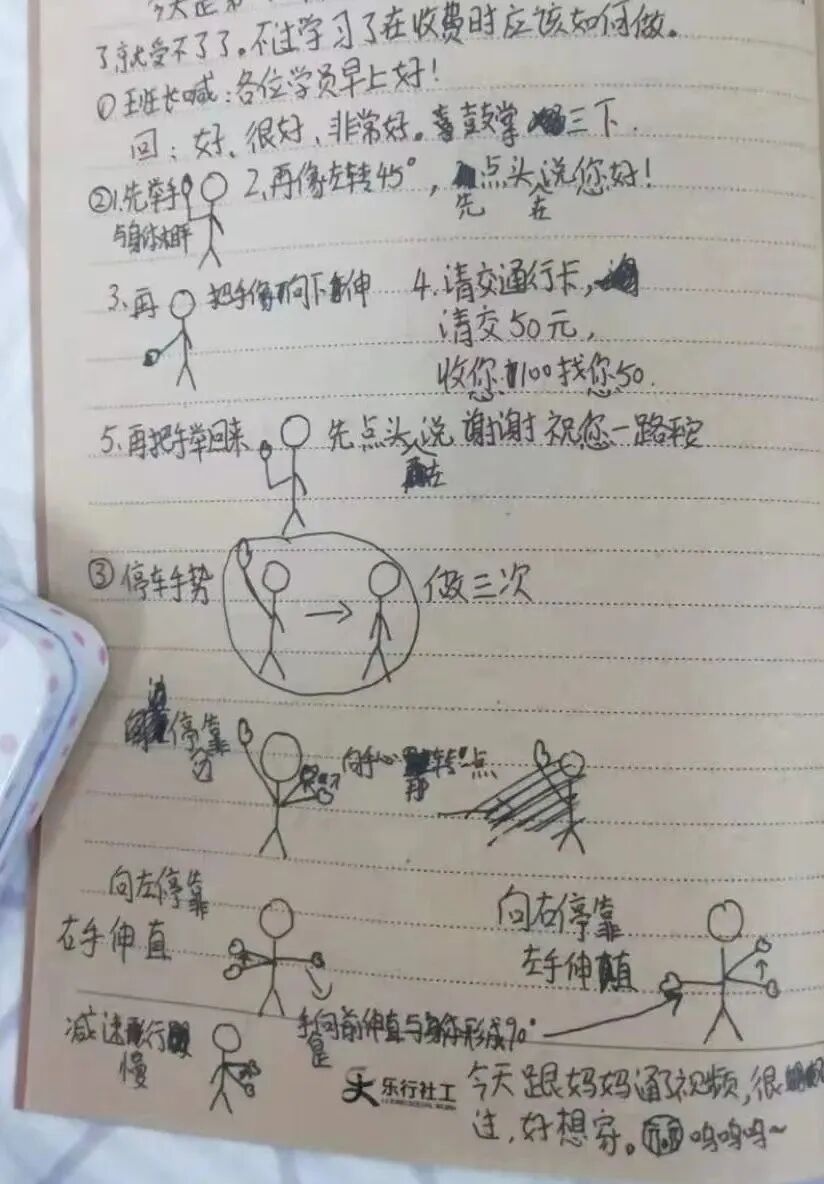 今天是
了,就受不了了。不过学习了在收费时应该如何做。
①班长喊:各位学员早上好!
回:好、很好、非常好。鼓掌三下.
②1.先举手 2.再像左转45°,点头,说您好!
与身体相平 先 在
3.再 把手像下伸 4.请交通行卡,
请交50元,
收您100找您50.
5.再把手举回来 先点头,说 谢谢 祝您一路平安
在
③停车手势 做三次
停靠
边
向手心 转 点
再
向左停靠
右手伸直
向右停靠
左手伸直
减速行
慢
手向前伸直与身体形成90°
是
乐行社工
今天跟妈妈通了视频,很
,好想家。呜呜呜~